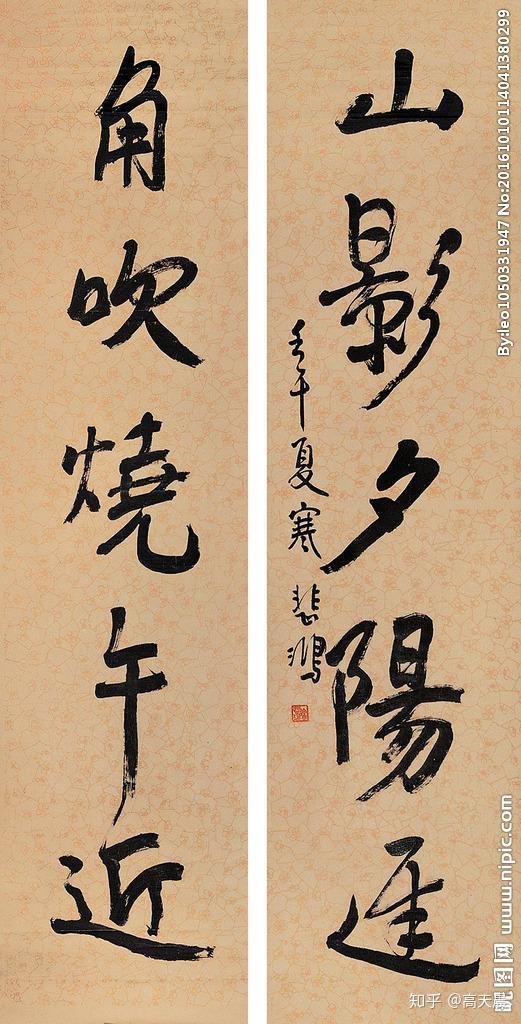 山影夕陽遲
壬午夏寒 悲鴻
角吹燒午近
By:leo1050331947 No:20161010114041380299
昵图网 www.nipic.com
知乎 @高天